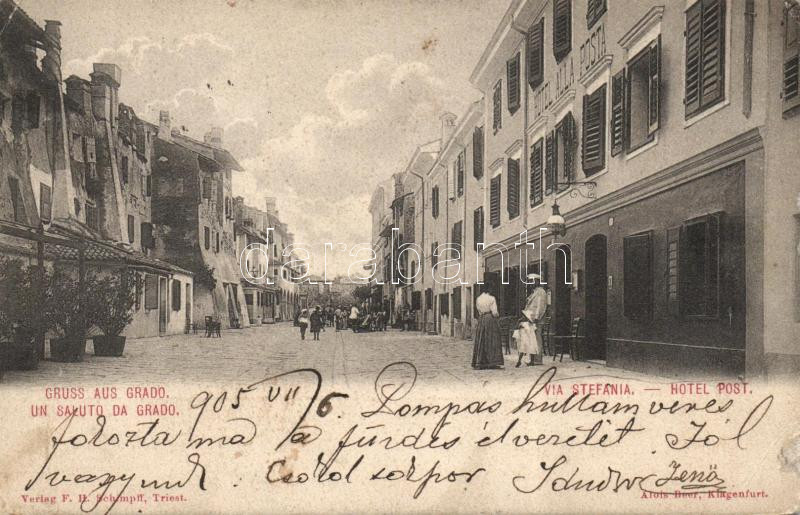 HOTEL ALLA POSTA
darabanth
GRUSS AUS GRADO.
UN SALUTO DA GRADO.
VIA STEFANIA. — HOTEL POST.
905 VII/6. Pompás hullámverés
fokozta ma a fürdés élvezetét. Jól
vagyunk. Csókol sokszor Sándor Jenő
Verlag F. H. Schimpff, Triest.
Alois Beer, Klagenfurt.